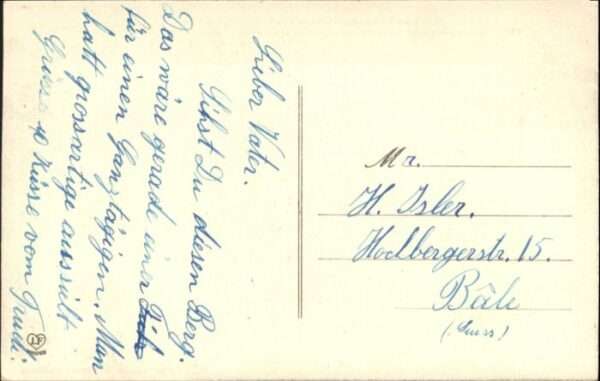 Lieber Vater.
Sihst Du diesen Berg.
Das wäre gerade einer
für einen Ganztägigen. Man
hatt grossartige aussiht
Grüsse & Küsse vom Trudi.
Ma.
H. Isler.
Hochbergerstr. 15.
Bâle
(Suiss)